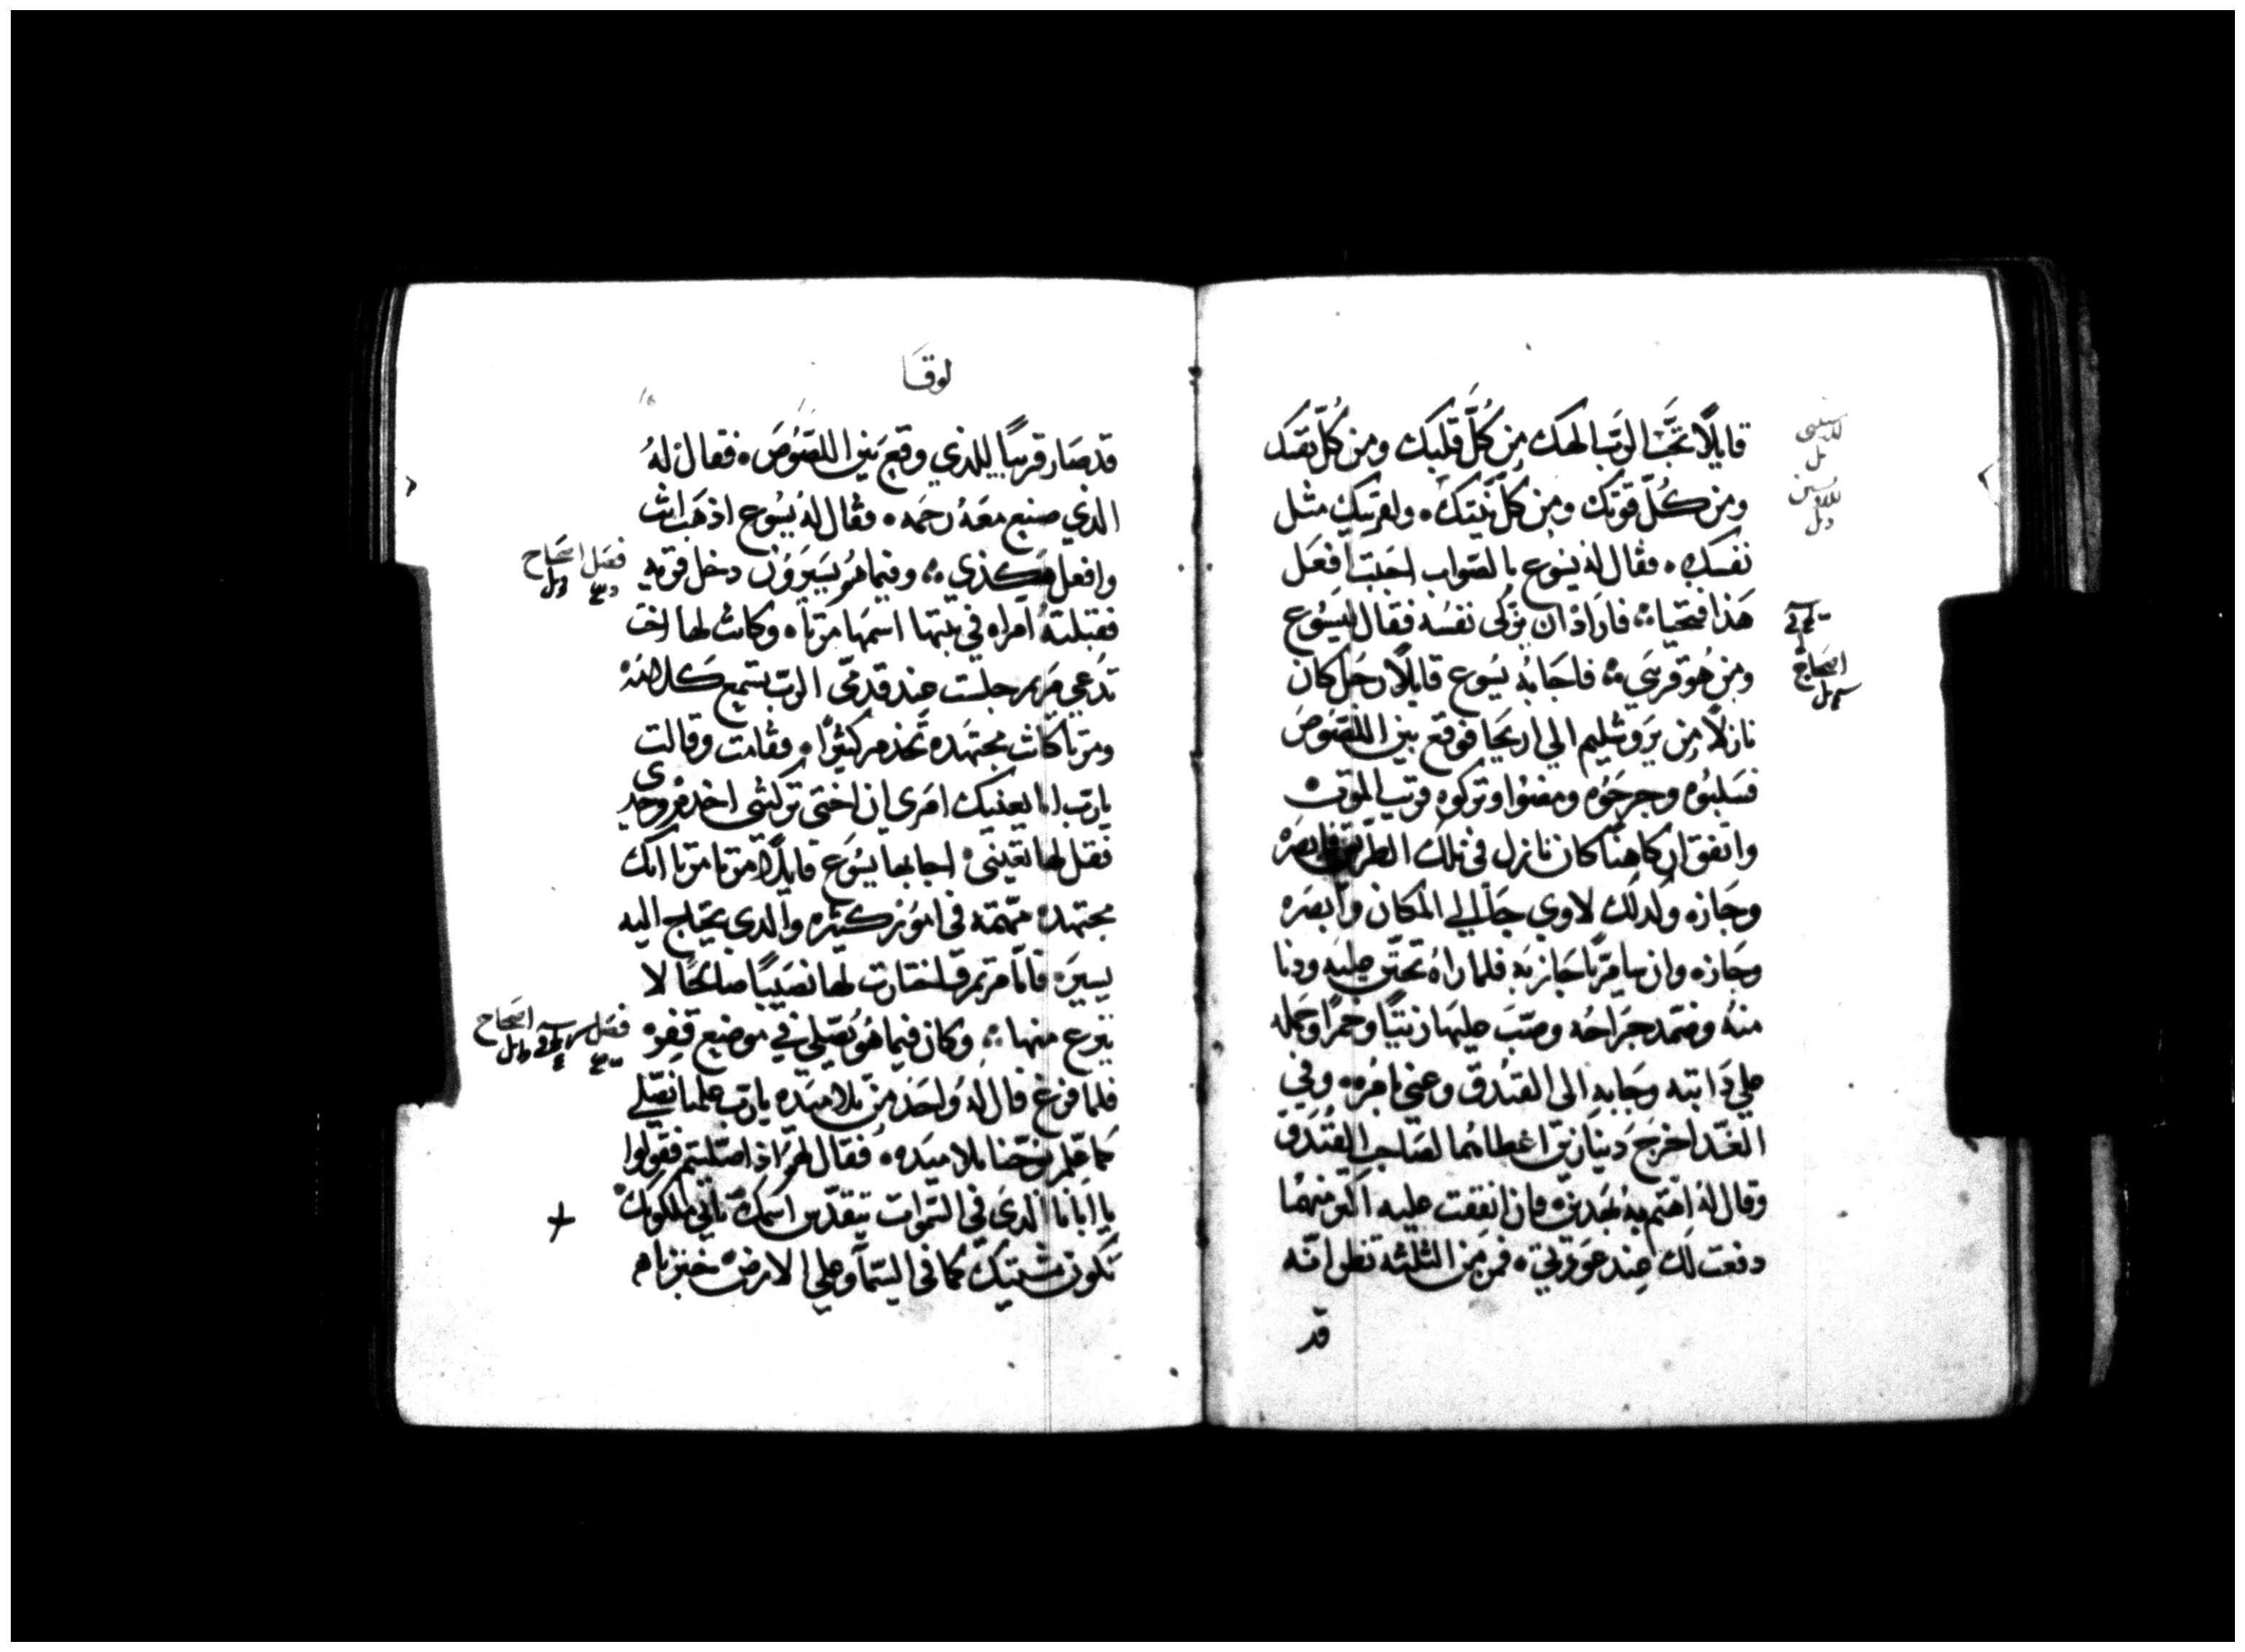 قايلًا تحَّب الربّ الهك من كُلّ قلبك ومن كلّ نفسك
ومن كُلّ قوتك ومن كلّ نيتك ۰ ولقريبك مثل
نفسك ۰ فقال له يسُوع بالصَواب اجَبت افعَل
هَذا فتحيا ܀ فارَاد ان يزَكى نفسُه فقال ليَسُوع
ومن هُو قريبَي ܀ فاجَابهُ يسُوع قايلًا رجَل كان
نازلًا من يرَوشليم الي اريحَا فوقع بين اللصُوصَ
فسَلبوُه وجرحَوُه ومضوُا وتركوه قريب الموت
واتفق ان كاهنًا كان نازل فى تلك الطرَيق فابصَرَه
وجَازه وكدلك لاوي جَا الي المكان وابصَره
وجَازه وان سامَريًا جَاز به فلما راهُ تحنّن عليَه ودنا
منهُ وضمَد جرَاحُه وصَبّ عليهَا زيتًا وخمرًا وحَمله
علي دَابته وجَابه الى الفنُدق وعني بامرُه ۰ وفي
الغَد اخرجَ دَينارَين اعَطاهُما لصَاحب الفنُدَق
وقال لهُ اهتَم به بَهدين فان انفقت عليه اكثر منهمُا
دفعت لك عِند عَودَتي ۰ فمن من الثلثه تظن انّه
قد
للسسى
اصحَاح
لوقَا
قد صَار قريبًا للذي وقعَ بَين اللصُوصَ ۰ فقال لهُ
الذي صنع معَهُ رحَمه ۰ فقال لهُ يسُوع اذهَب انت
وافعل هَكذي ܀ وفيما هُم يسَيرَوُن دخل قريه
فقبلتهُ امَراه في بيتها اسمهَا مرَتا ۰ وكانت لها اخَت
تدعَي مرَيم جلسَت عِند قدمَى الربّ تسَتمع كَلامَهُ
ومرَتا كانت مجتهَده تخَدم كثيرًا ۰ فقامَت وقالت
يارَب اما يعنيك امَري ان اختى ترَكتنى اخدمُ وحَدي
فقل لها تعَينني ۰ اجابها يسُوَع قايلًا مرَتا مرَتا انك
مجتهده مهَتمه فى امُور كَثيره والدى يحَتاج اليه
يسيرَه فامَّا مرَيم قد اختارَت لهَا نصَيبًا صَالحًا لا
ينزع منها ܀ وكان فيما هُو يصَلي في موضع قفره
فلما فرغ قال لهُ وَاحَد من تلاميَده يارَب علمنا نصَلي
كما علم يوحَنا تلاميَده ۰ فقال لهمُ اذا صَليتم فقولوُا
يا ابانا الدى فى السَموَات يتقدّس اسمَك تاتي ملكوَتك
تكون مشيتك كما فى السَمآ وعلي الارض خبزنا م
فصَل اصحَاح
فصَل اصحَاح